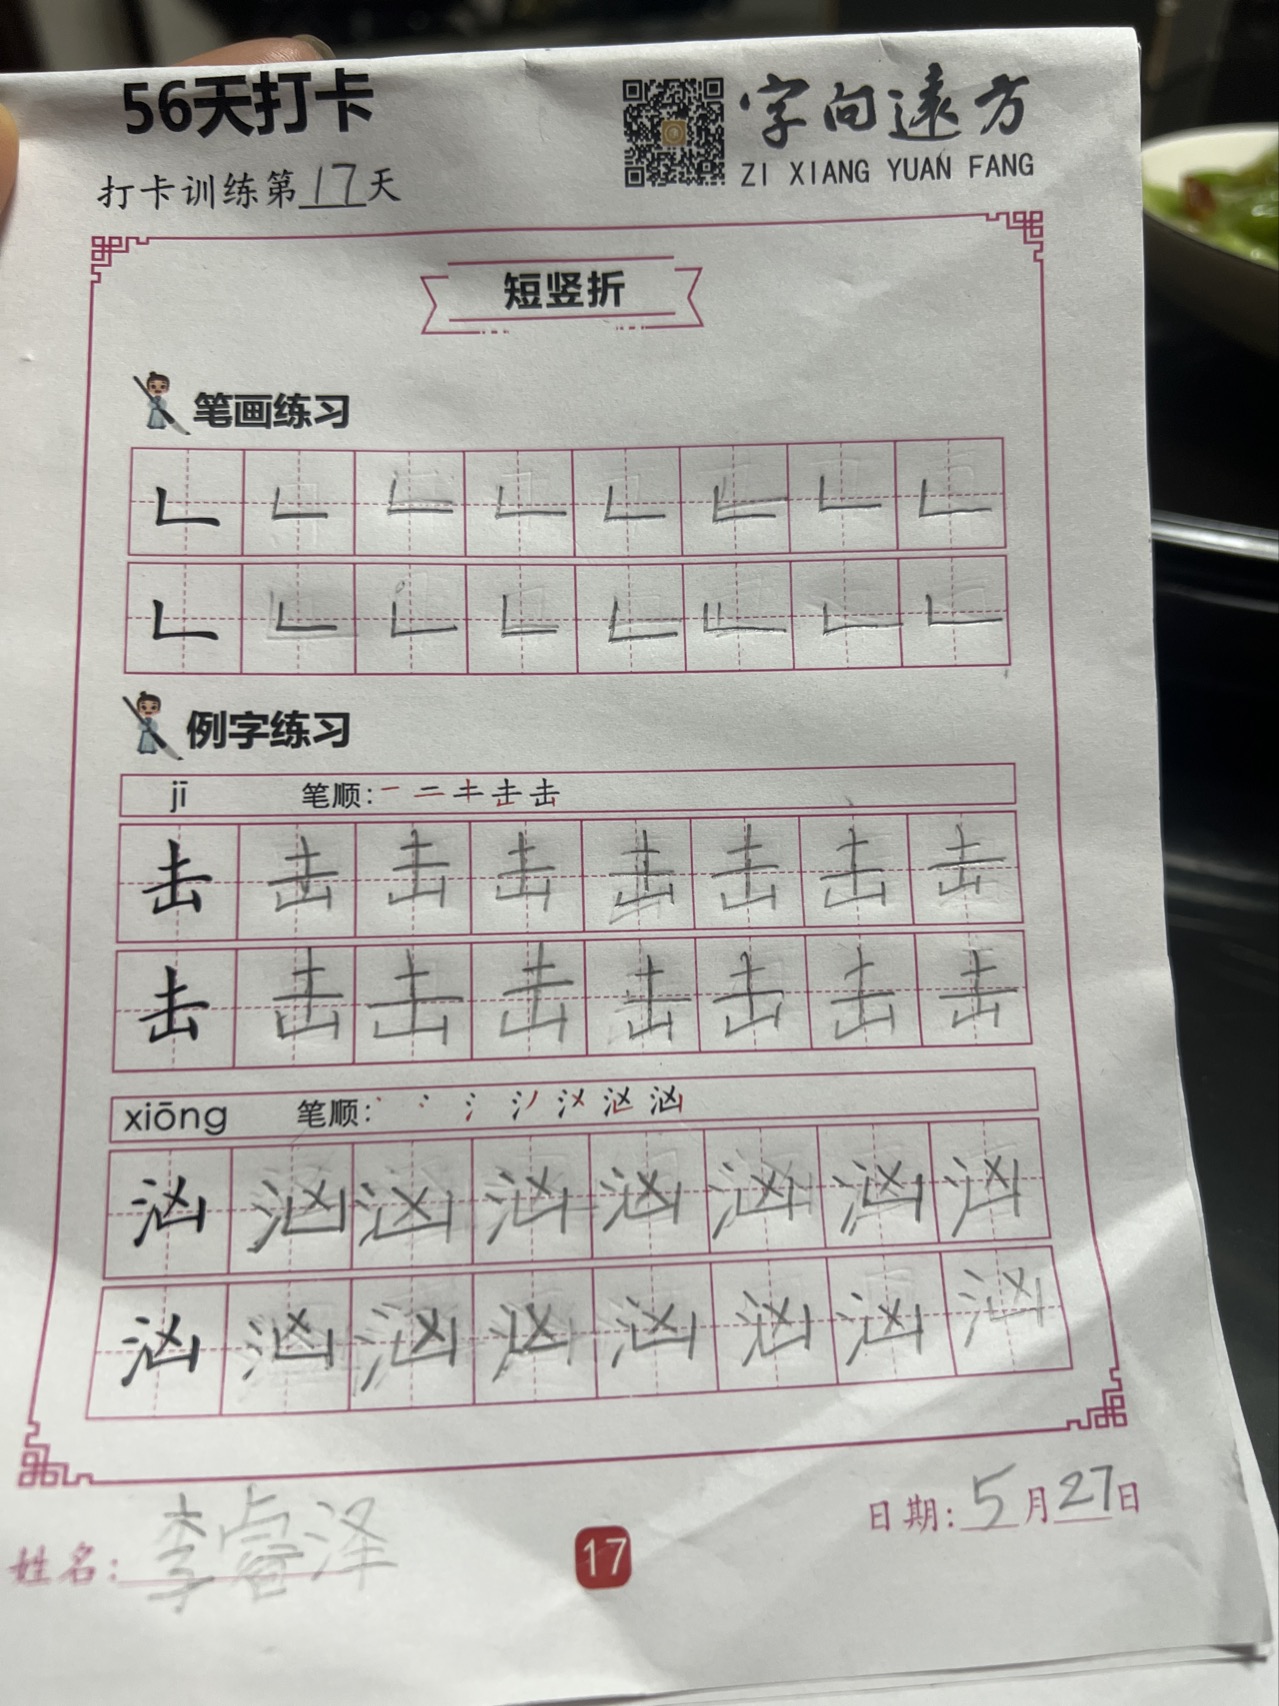 56天打卡
字向远方
ZI XIANG YUAN FANG
打卡训练第17天
短竖折
笔画练习
例字练习
jī 笔顺：一 二 キ 击 击
击 击 击 击 击 击 击 击
击 击 击 击 击 击 击 击
xiōng 笔顺：丶 冫 氵 汹 汹
汹 汹 汹 汹 汹 汹 汹 汹
汹 汹 汹 汹 汹 汹 汹 汹
姓名：李睿泽
17
日期：5月27日